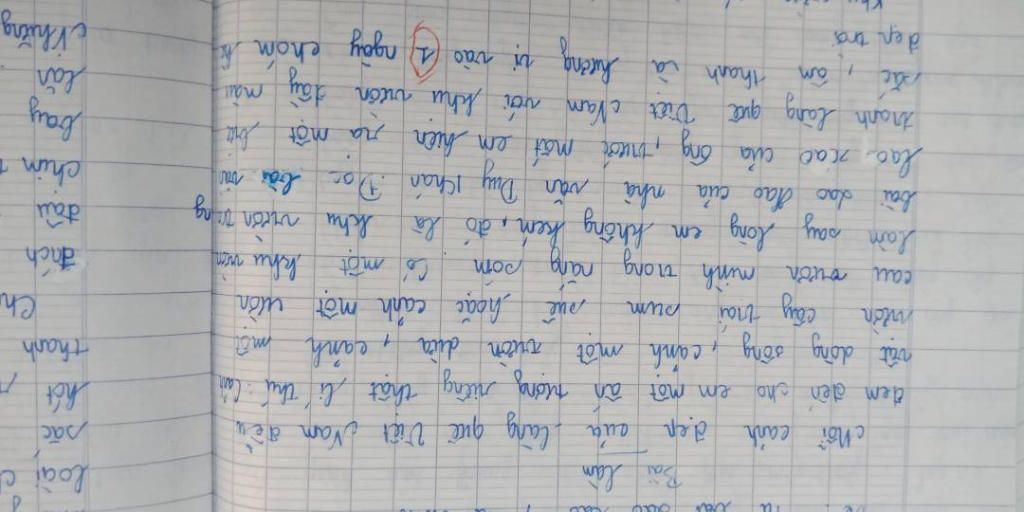 Bài làm
Mỗi cảnh đẹp của làng quê Việt Nam đều
đem đến cho em một ấn tượng riêng thật lí thú: Cảnh
vật dòng sông, cảnh một vườn dừa, cảnh một
vườn cây trái sum suê hoặc cảnh một vườn
cau vươn mình trong nắng sớm. Có một khu vườn
làm say lòng em không kém, đó là khu vườn trong
bài dao đao của nhà văn Duy Khán. Đọc bài văn
lao xao của ông, trước mắt em hiện ra một
tranh làng quê Việt Nam với khu vườn đầy màu
sắc, âm thanh và hương vị vào 1 ngày chớm hè
đẹp trời
Loài
sắc
hót
thanh
Ch
đích
đâu
chim
bay
lần
Không